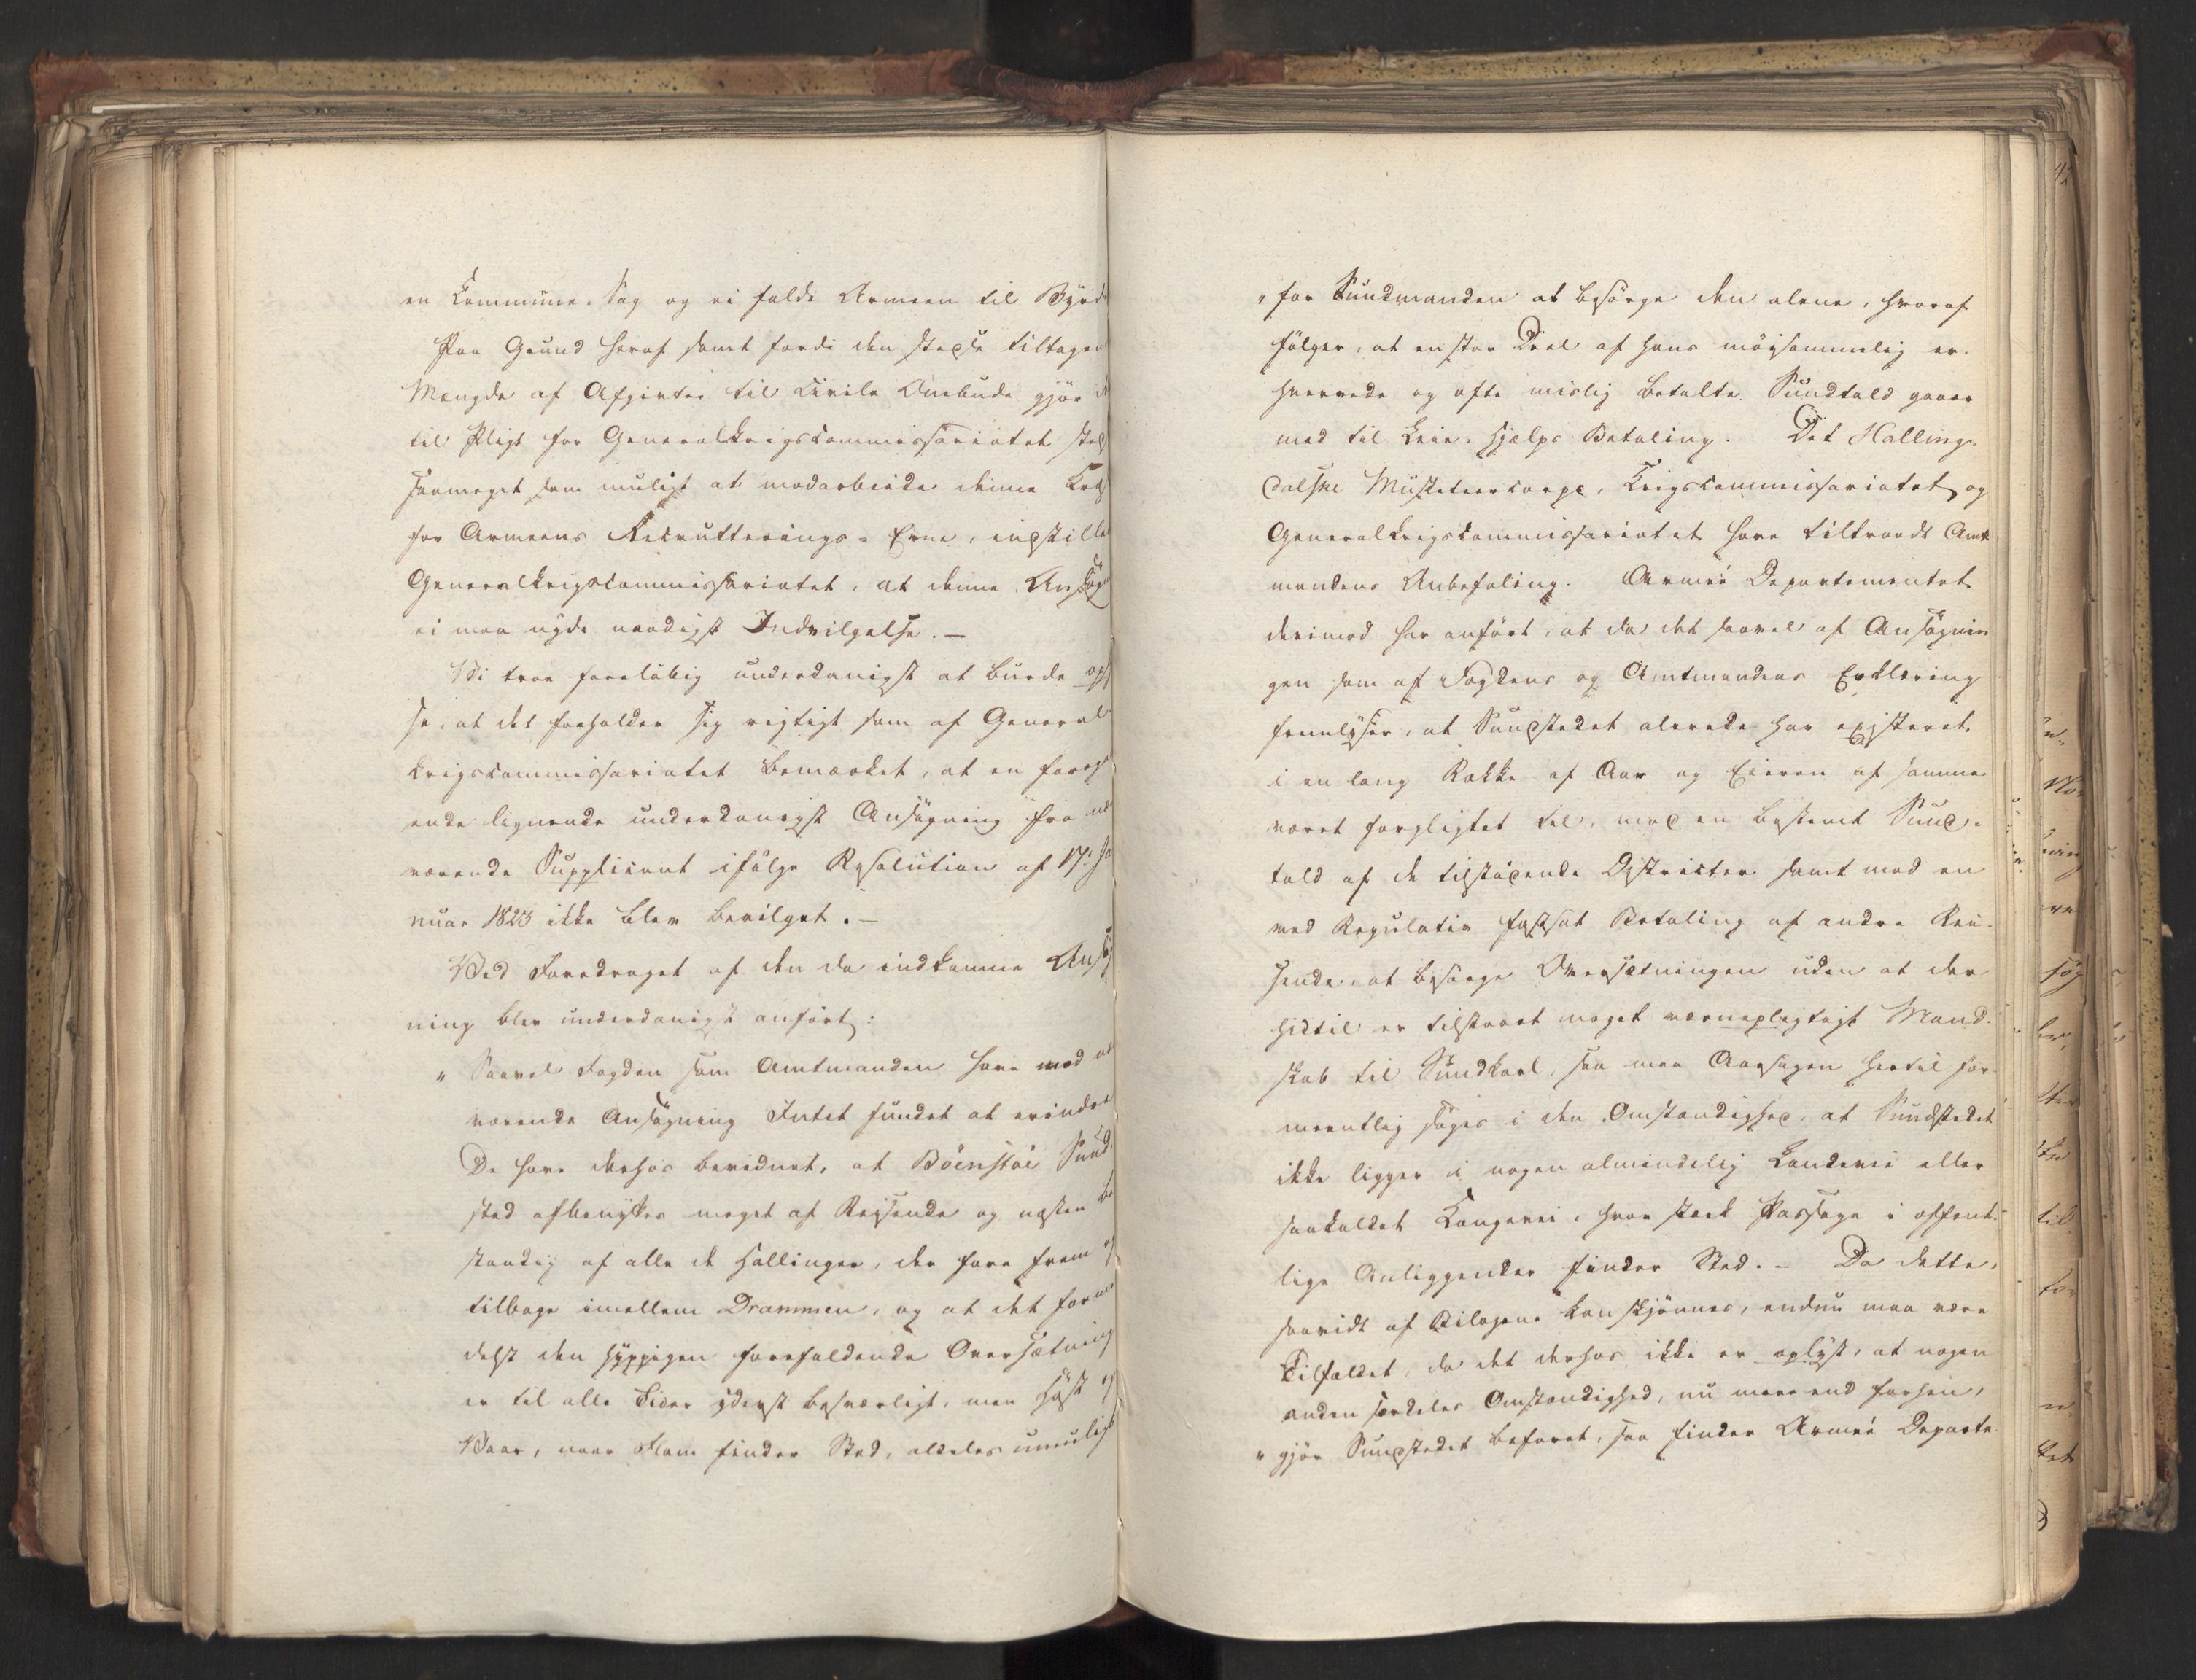 en Commune-Sag og ei falde Armeen til Byrde
Paa Grund heraf samt fordi den stedse tiltagen
Mængde af Afgivter til Civile Ombude gjør det
til Pligt for Generalkrigscommissariatet
saameget som muligt at modarbeide denne
for Armeens Recrutterings-Evne, indstiller
Generalkrigscommissariatet, at denne Ansøg
ei maa nyde naadigst Indvilgelse.—
Vi troe foreløbig underdanigst at burde op
se, at det forholder sig rigtigt som af General
krigscommissariatet bemærket, at en foregaa
ende lignende underdanigst Ansøgning fra nær
værende Supplicant ifølge Resolution af 17de Ja
nuar 1823 ikke blev bevilget.—
Ved Foredraget af den da indkomne Ansøg
ning blev underdanigst anført:
" Saavel Fogden som Amtmanden have mod nær
værende Ansøgning Intet fundet at erindre
De have derhos bevidnet, at Böenstöe Sund-
sted afbenyttes meget af Reisende og næsten be
standig af alle de Hallinger, der fare frem og
tilbage imellem Drammen, og at det formed
delst den hyppigen forefaldende Oversætning
er til alle Tider yderst besværligt, men Høst og
Vaar, naar Flom finder Sted, aldeles umuligt
" for Sundmanden at besørge den alene, hvoraf
følger, at en stor Deel af hans møisommelig er-
hvervede og ofte mislig betalte Sundtold gaaer
med til Leie-Hjelps Betaling. Det Halling-
dalske Musketeercorps, Krigscommissariatet og
Generalkrigscommissariatet have tiltraadt Amt-
mandens Anbefaling. Armee Departementet
derimod har anført, at da det saavel af Ansøgnin
gen som af Fogdens og Amtmandens Erklæring
fremlyser, at Sundstedet allerede har existeret
i en lang Række af Aar og Eieren af samme
været forpligtet til, mod en bestemt Sund-
told af de tilstødende Districter samt mod en
ved Regulativ fastsat Betaling af andre Rei-
sende, at besørge Oversætningen uden at der
hidtil er tilstaaet noget værnepligtigt Mand-
skab til Sundkarl, saa maa Aarsagen hertil for-
meentlig søges i den Omstændighed, at Sundstedet
ikke ligger i nogen almindelig Landevei eller
saakaldet Kongevei, hvor stærk Passage i offent-
lige Anliggender finder Sted.— Da dette,
saavidt af Bilagene kan skjønnes, endnu maa være
Tilfældet, da det derhos ikke er oplyst, at nogen
anden særdeles Omstændighed, nu meer end forhen,
" gjør Sundstedet befaret, saa finder Armeé Departe-